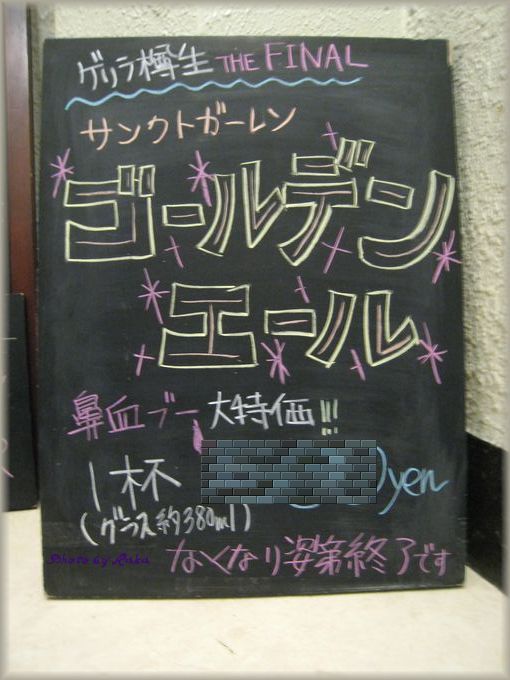 ゲリラ樽生 THE FINAL
サンクトガーレン
ゴールデン
エール
鼻血ブー 大特価!!!
1杯 0yen
(グラス約380ml)
なくなり姿第終了です
Photo by Raku